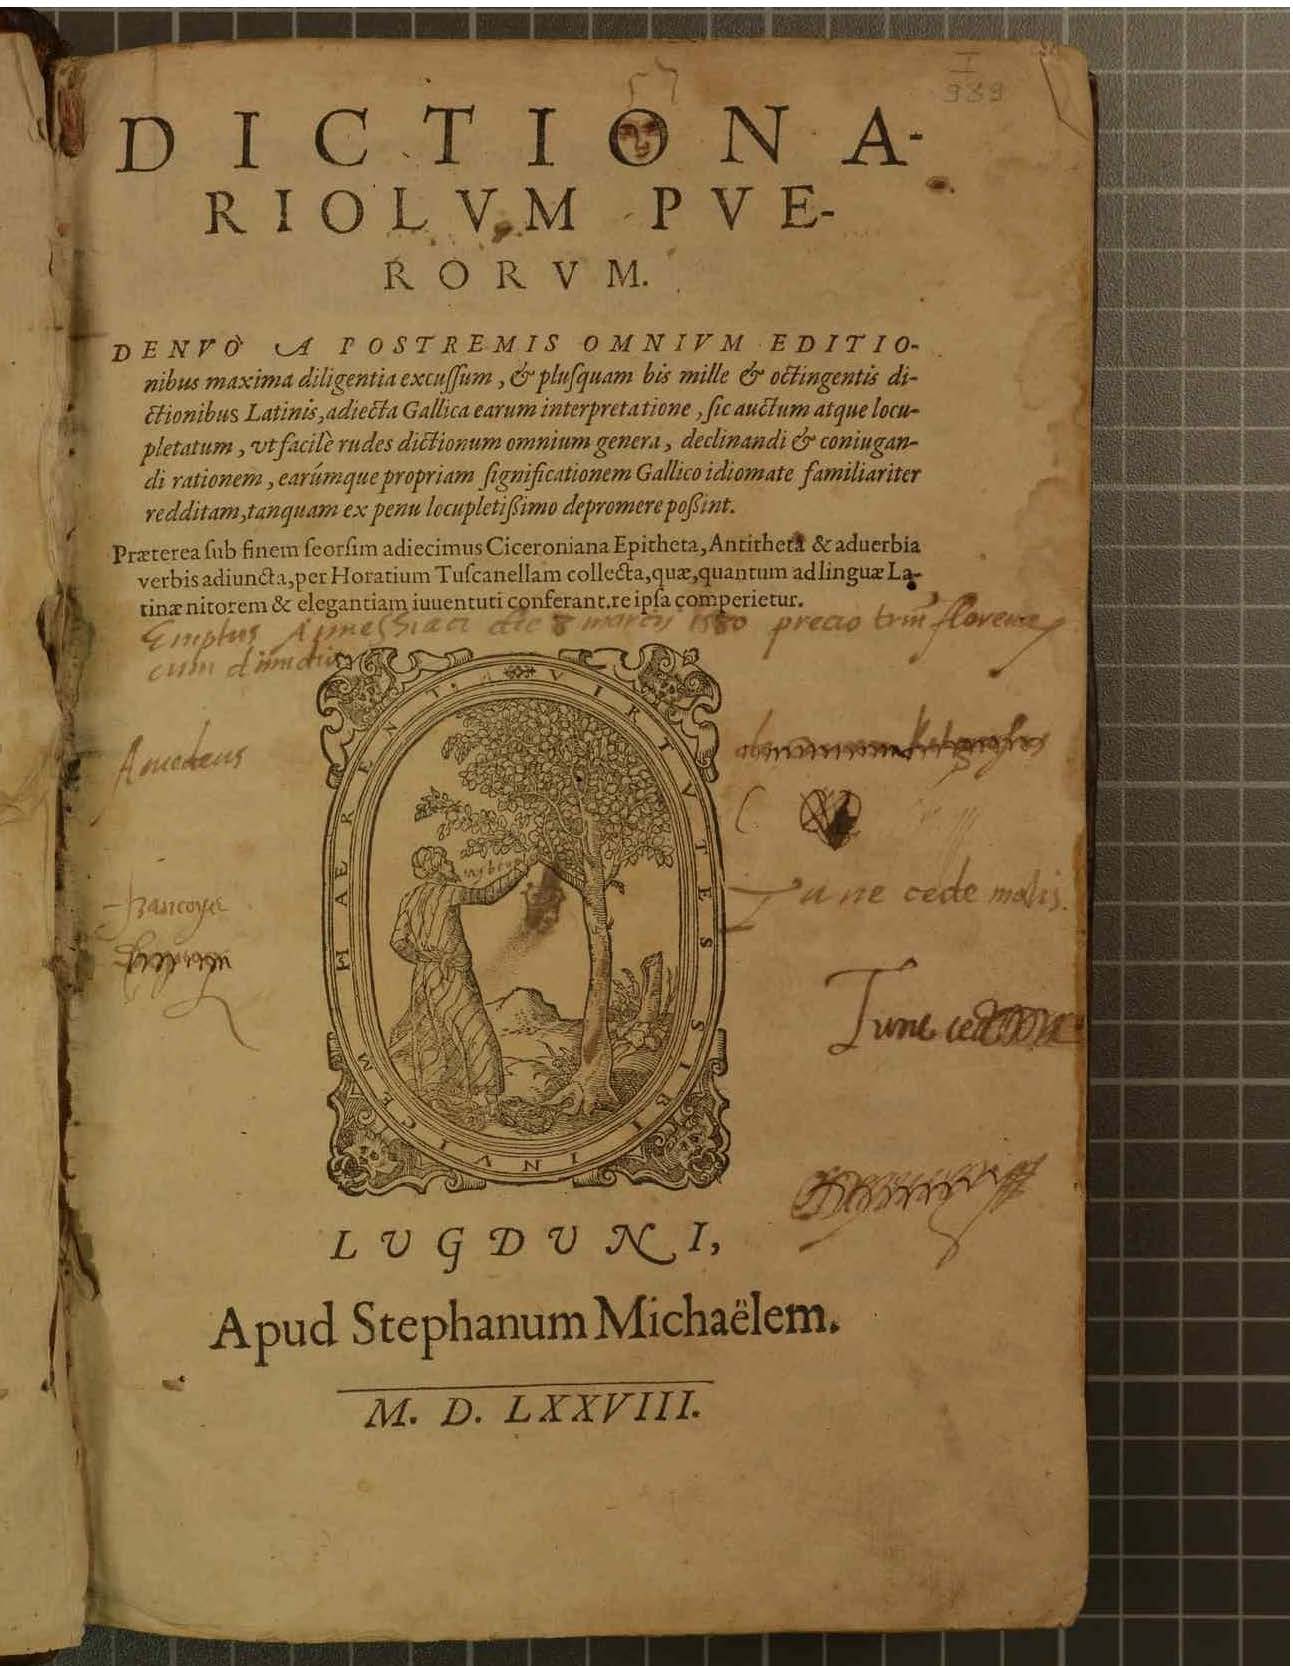 I
989
DICTIONA-
RIOLVM PVE-
RORVM.
DENVÒ A POSTREMIS OMNIVM EDITIO-
nibus maxima diligentia excuſſum, & pluſquam bis mille & octingentis di-
ctionibus Latinis, adiecta Gallica earum interpretatione, ſic auctum atque locu-
pletatum, vt facilè rudes dictionum omnium genera, declinandi & coniugan-
di rationem, earúmque propriam ſignificationem Gallico idiomate familiariter
redditam, tanquam ex penu locupletiſſimo depromere poſſint.
Præterea ſub finem ſeorſim adiecimus Ciceroniana Epitheta, Antitheta & aduerbia
verbis adiuncta, per Horatium Tuſcanellam collecta, quæ, quantum ad linguæ La-
tinæ nitorem & elegantiam iuuentuti conferant. re ipſa comperietur.
Emptus die 8 martij 1580 precio trium
cum
Amedeus
VIRTVTES SIBI INVICEM MAERENT.
francoyse
Tu ne cede malis.
Tu ne
LUGDUNI,
Apud Stephanum Michaëlem.
M. D. LXXVIII.